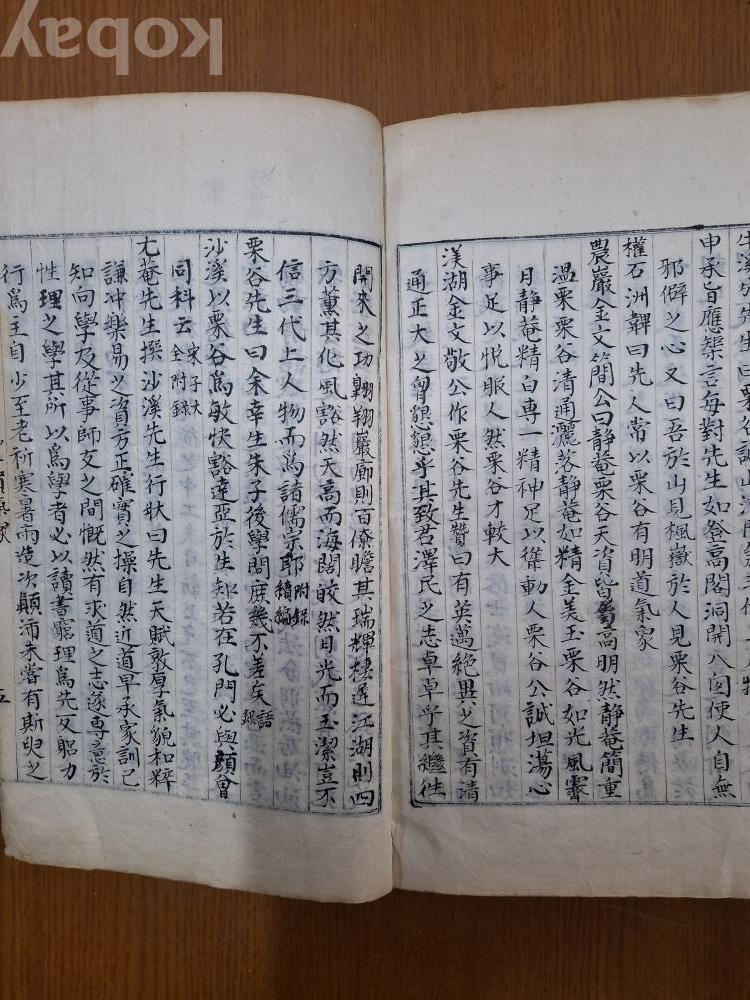 kobay
先生曰栗谷
申承旨應榘言每對先生如登高閣洞開八囱使人自無
邪僻之心又曰吾於山見楓嶽於人見栗谷先生
權石洲韠曰先人常以栗谷有明道氣家
農巖金文簡公曰靜菴栗谷天資皆高明然靜菴簡重
溫栗栗谷清通灑落靜菴如精金美玉栗谷如光風霽
月靜菴精白專一精神足以聳動人栗谷公誠坦蕩心
事足以悅服人然栗谷才較大
渼湖金文敬公作栗谷先生贊曰有英邁絕異之資有清
通正大之胷懇懇乎其致君澤民之志卓卓乎其繼往
開來之功翱翔巖廊則百僚瞻其瑞輝棲遲江湖則四
方薰其化風豁然天高而海闊皎然日光而玉潔豈不
信三代上人物而爲諸儒宗耶附錄續編
栗谷先生曰余幸生朱子後學問庶幾不差矣語錄
沙溪以栗谷爲敏快豁達亞於生知若在孔門必與顏曾
同科云宋子大全附錄
尤菴先生撰沙溪先生行狀曰先生天賦敦厚氣貌和粹
謙冲樂易之資方正確實之操自然近道早承家訓已
知向學及從事師友之間慨然有求道之志遂專意於
性理之學其所以爲學者必以讀書窮理爲先反躬力
行爲主自少至老祈寒暑雨造次顚沛未嘗有斯臾之